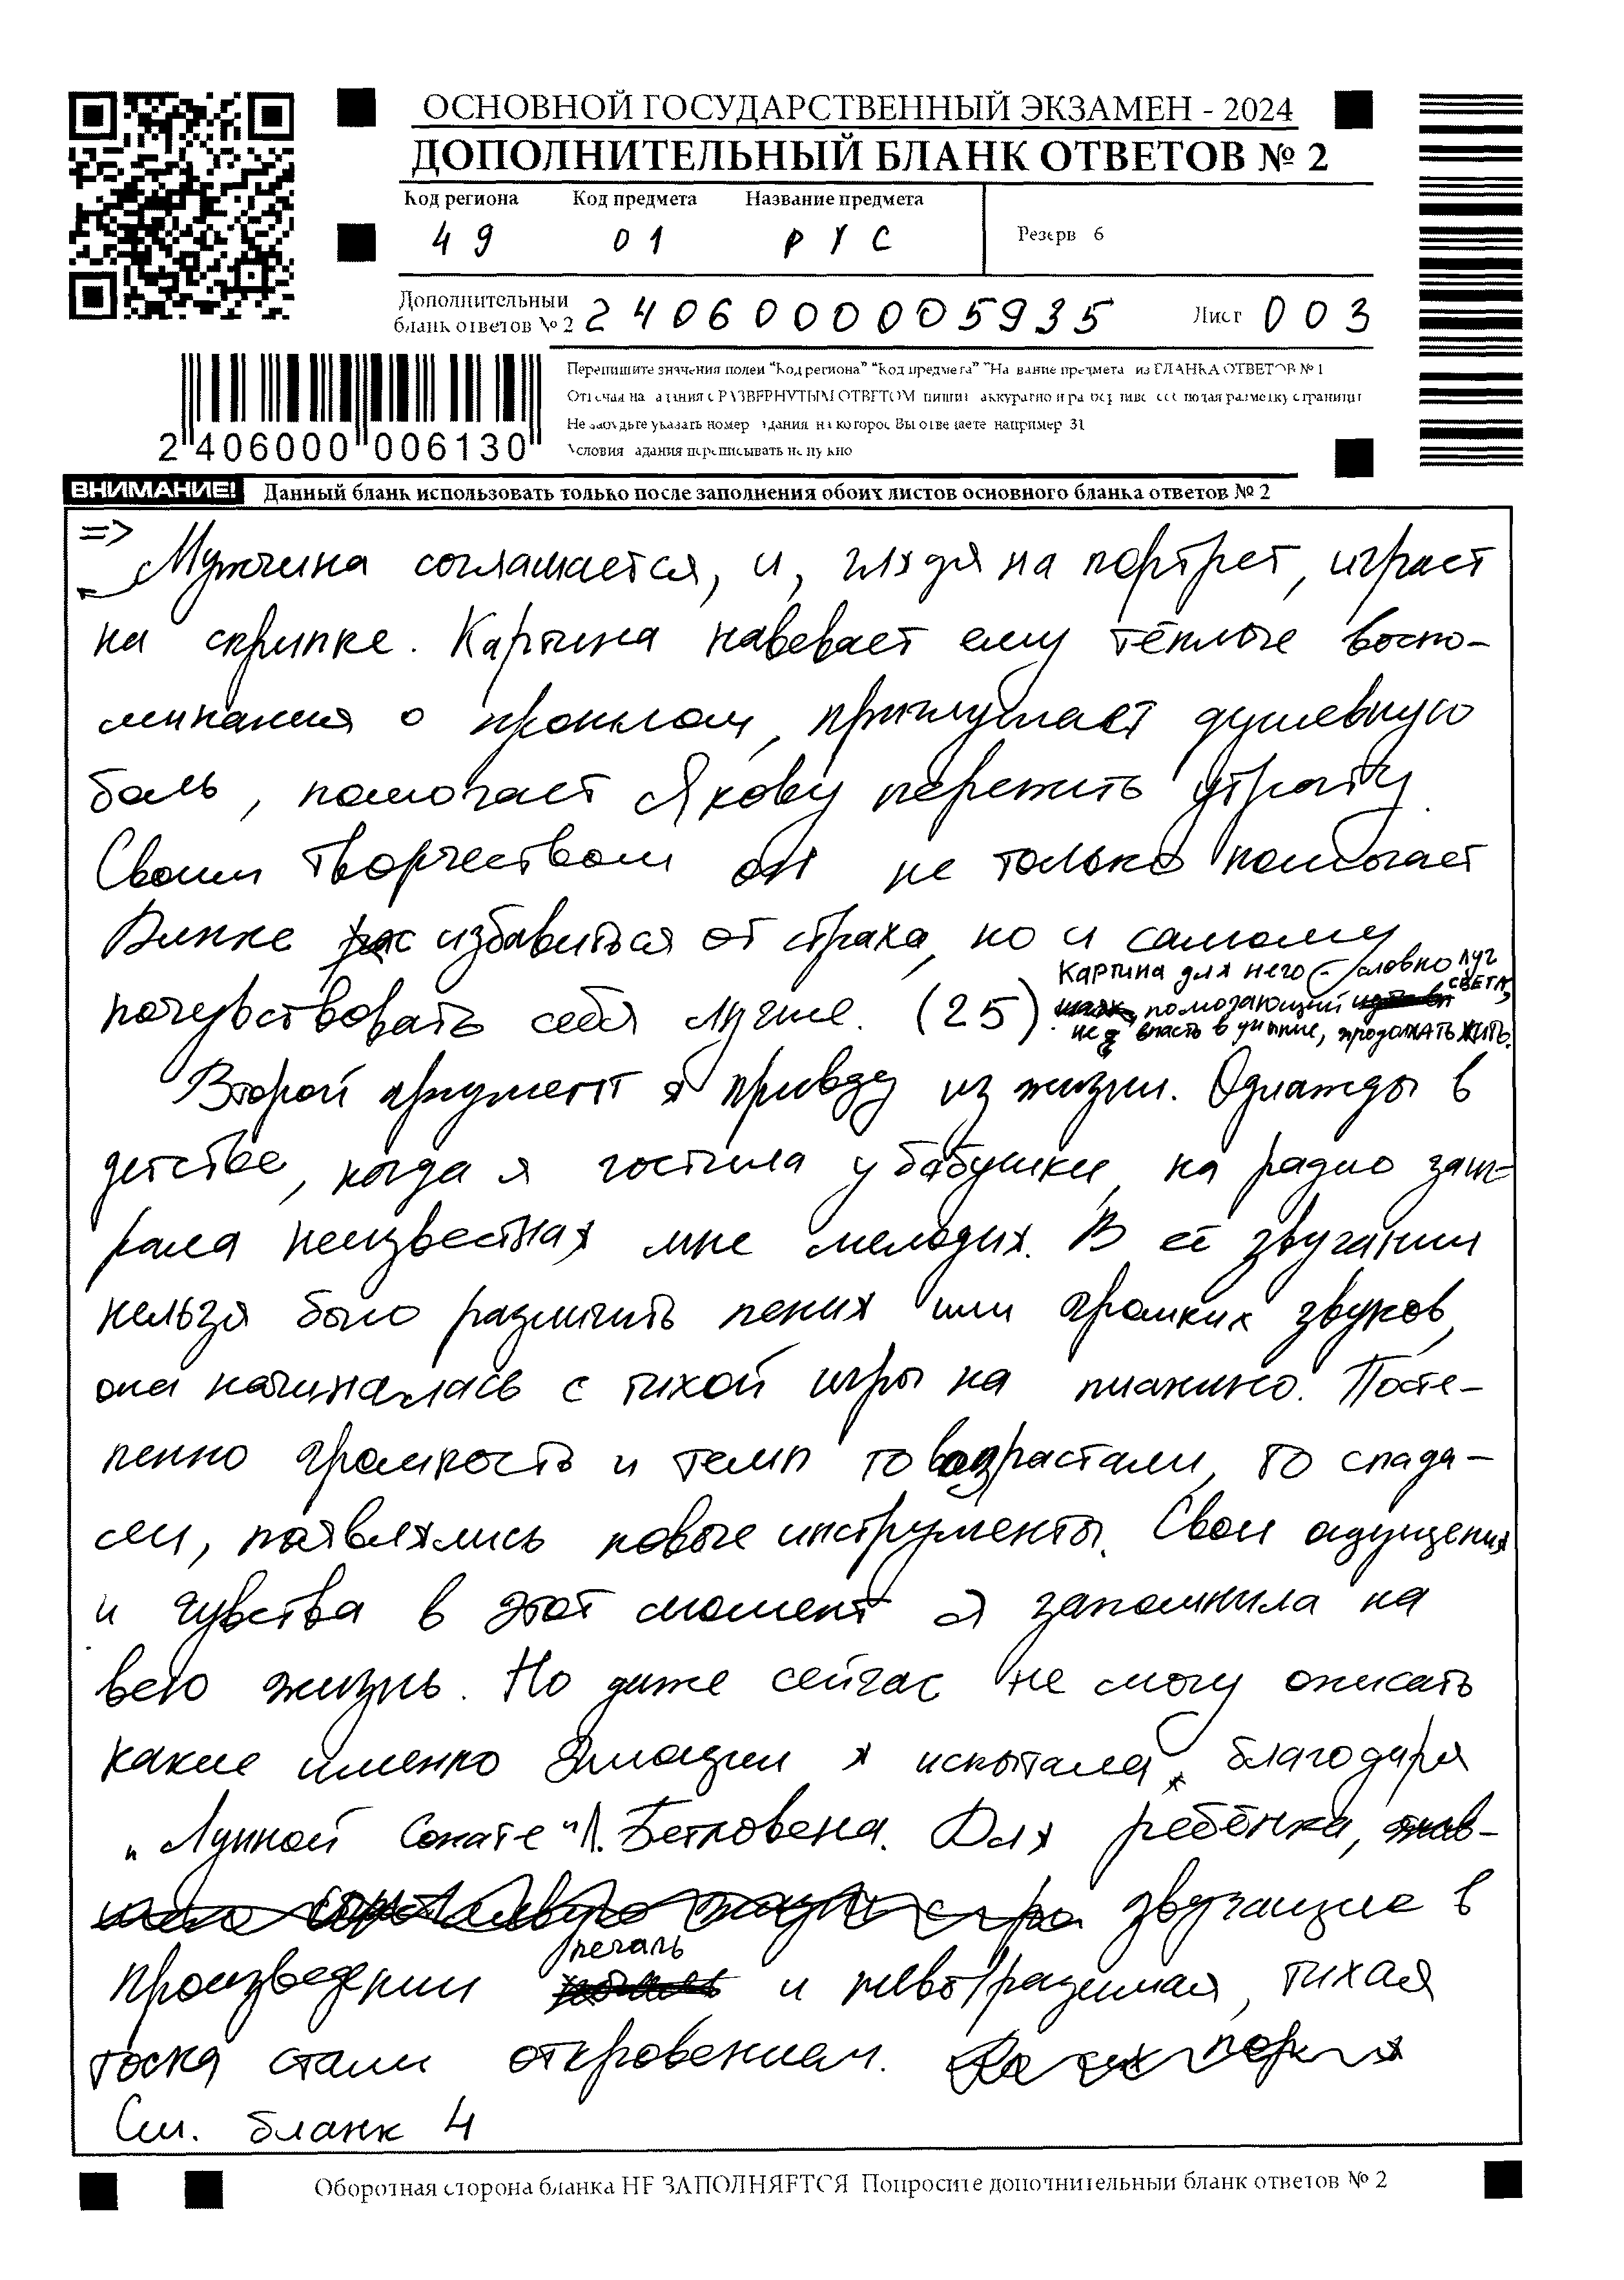 ОСНОВНОЙ ГОСУДАРСТВЕННЫЙ ЭКЗАМЕН - 2024
ДОПОЛНИТЕЛЬНЫЙ БЛАНК ОТВЕТОВ № 2
Код региона Код предмета Название предмета
49 01 РУС
Резерв 6
Дополнительный
бланк ответов № 2 2406000005935 Лист 003
2 406000 006130
Перепишите значения полей "Код региона" "Код предмета" "Название предмета" из БЛАНКА ОТВЕТОВ № 1
Отвечая на задания с РАЗВЕРНУТЫМ ОТВЕТОМ пишите аккуратно и разборчиво соблюдая разметку страницы
Не забудьте указать номер задания на которое Вы отвечаете например 31
Условия задания переписывать не нужно
ВНИМАНИЕ! Данный бланк использовать только после заполнения обоих листов основного бланка ответов № 2
=>
Мужчина соглашается, и, глядя на портрет, играет
на скрипке. Картина навевает ему тёплые воспо-
минания о прошлом, приглушает душевную
боль, помогает Якову пережить утрату.
Своим творчеством он не только помогает
Димке избавиться от страха, но и самому
почувствовать себя лучше. (25) Картина для него – словно луч
света, помогающий
не впасть в уныние, продолжать жить.
Второй аргумент я приведу из жизни. Однажды в
детстве, когда я гостила у бабушки, на радио заиг-
рала неизвестная мне мелодия. В её звучании
нельзя было различить пения или громких звуков,
она начиналась с тихой игры на пианино. Посте-
пенно громкость и темп то возрастали, то спада-
ли, появлялись новые инструменты. Свои ощущения
и чувства в этот момент я запомнила на
всю жизнь. Но даже сейчас не могу описать
какие именно эмоции я испытала, благодаря
"Лунной Сонате" Л. Бетховена. Для ребёнка,
звучащие в
произведении печаль и невыразимая, тихая
тоска стали откровением.
См. бланк 4
Оборотная сторона бланка НЕ ЗАПОЛНЯЕТСЯ Попросите дополнительный бланк ответов № 2